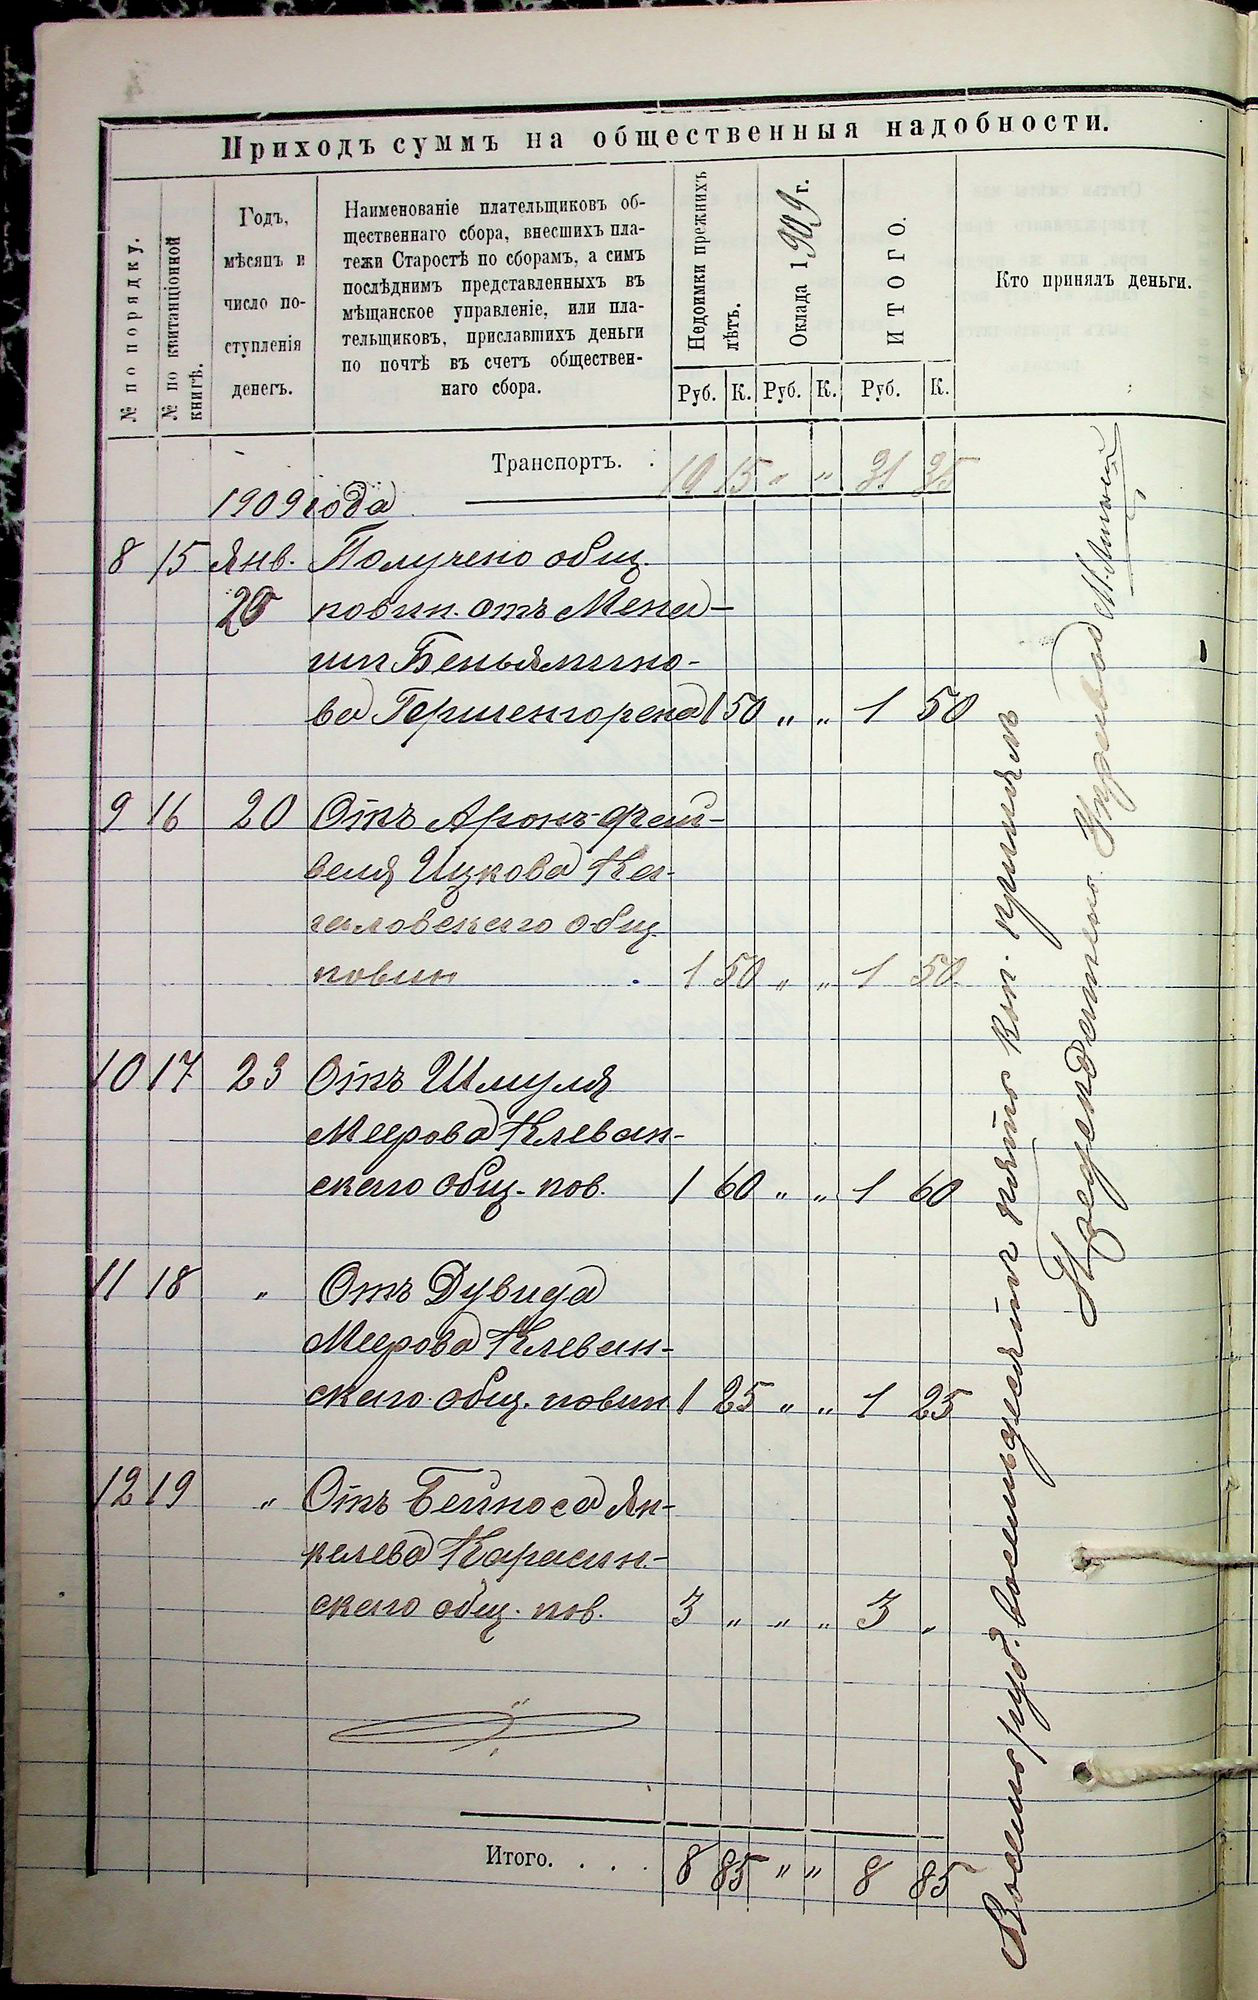 Приходъ суммъ на общественныя надобности.
№ по порядку.
№ по квитанціонной книгѣ.
Годъ,
мѣсяцъ и
число по-
ступленія
денегъ.
Наименованіе плательщиковъ об-
щественнаго сбора, внесшихъ пла-
тежи Старостѣ по сборамъ, а симъ
послѣднимъ представленныхъ въ
мѣщанское управленіе, или пла-
тельщиковъ, приславшихъ деньги
по почтѣ въ счетъ обществен-
наго сбора.
Недоимки прежнихъ лѣтъ.
Оклада 1909 г.
ИТОГО.
Кто принялъ деньги.
Руб. К. Руб. К. Руб. К.
Транспортъ. . 10 15 " " 31 35
1909 года
8 15 Янв. Получено общ.
20 повин. отъ Мена-
ши Беньямино-
ва Гершенгорена 1 50 " " 1 50
9 16 20 Отъ Аронъ-Фай-
веля Ицкова Ка-
галовскаго общ.
повин 1 50 " " 1 50
10 17 23 Отъ Шмуля
Меерова Клеван-
скаго общ. пов. 1 60 " " 1 60
11 18 " Отъ Дувида
Меерова Клеван-
скаго общ. повин 1 25 " " 1 25
12 19 " Отъ Бейноса Ян-
келева Карасин-
скаго общ. пов. 3 " " " 3 "
Итого. . . . 8 85 " " 8 85
Восемь руб. восемьдесятъ пять коп. принялъ